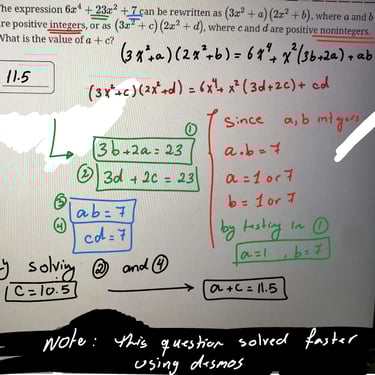 The expression 6x⁴ + 23x² + 7 can be rewritten as (3x² + a)(2x² + b), where a and b
re positive integers, or as (3x² + c)(2x² + d), where c and d are positive nonintegers.
What is the value of a + c?
(3x²+a)(2x²+b) = 6x⁴ + x²(3b+2a) + ab
11.5
(3x²+c)(2x²+d) = 6x⁴ + x²(3d+2c) + cd
① 3b+2a = 23
② 3d + 2c = 23
③ ab = 7
④ cd = 7
Since a,b intgers
a.b = 7
a = 1 or 7
b = 1 or 7
by testing in ①
a=1 , b=7
solving ② and ④
c = 10.5
a+c = 11.5
Note: this question solved faster
using desmos